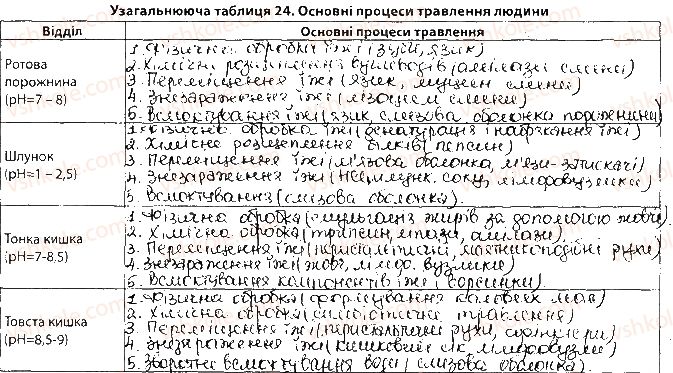 Узагальнююча таблиця 24. Основні процеси травлення людини
Відділ
Основні процеси травлення
Ротова порожнина (pH=7 – 8)
1. Фізична обробка їжі (зуби, язик)
2. Хімічне розщеплення вуглеводів (амілази слини)
3. Переміщення їжі (язик, муцин слини)
4. Знезараження їжі (лізоцим слини)
5. Всмоктування їжі (язик, слизова оболонка порожнини)
Шлунок (pH=1 – 2,5)
1. Фізична обробка їжі (денатурація і набрякання їжі)
2. Хімічне розщеплення білків (пепсин)
3. Переміщення їжі (м'язова оболонка, м'язи-затискачі)
4. Знезараження їжі (HCl шлунк. соку, лімфовузлики)
5. Всмоктування (слизова оболонка)
Тонка кишка (pH=7-8,5)
1. Фізична обробка (емульгація жирів за допомогою жовчі)
2. Хімічна обробка (трипсин, ліпази, амілази)
3. Переміщення їжі (перистальтичні, маятникоподібні рухи)
4. Знезараження їжі (жовч, лімфо. вузлики)
5. Всмоктування компонентів їжі (ворсинки)
Товста кишка (pH=8,5-9)
1. Фізична обробка (формування калових мас)
2. Хімічна обробка (симбіотичне травлення)
3. Переміщення їжі (перистальтичні рухи, сфінктери)
4. Знезараження їжі (кишковий сік, лімфовузли)
5. Зворотнє всмоктування води (слизова оболонка)